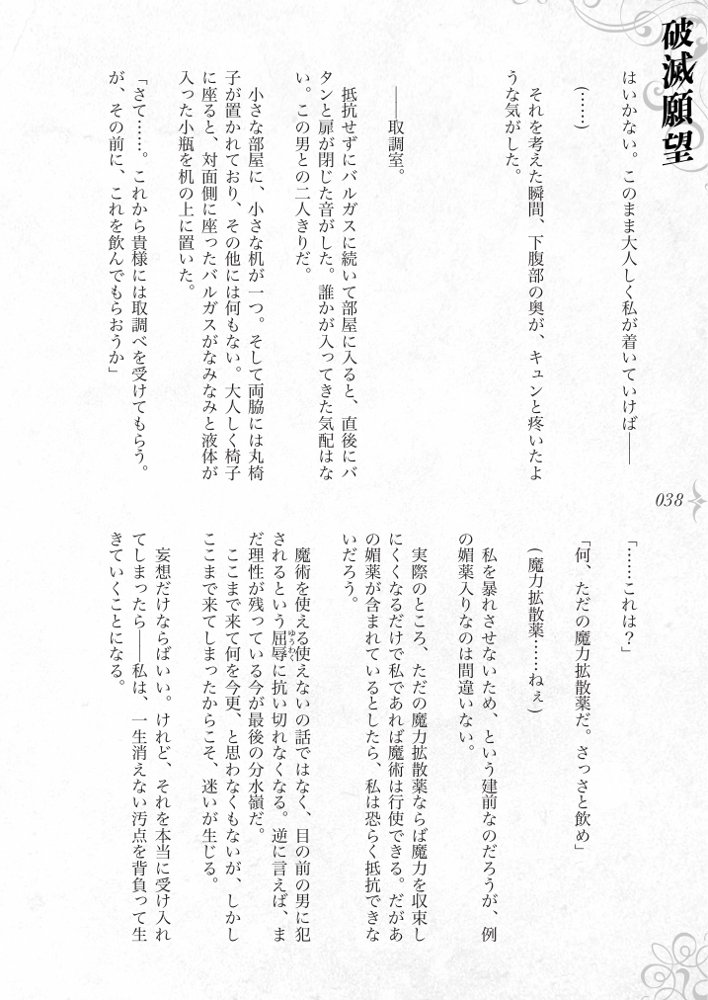 破滅願望
はいかない。このまま大人しく私が着いていけば――
(……)
　それを考えた瞬間、下腹部の奥が、キュンと疼いたよ
うな気がした。
――取調室。
　抵抗せずにバルガスに続いて部屋に入ると、直後にバ
タンと扉が閉じた音がした。誰かが入ってきた気配はな
い。この男との二人きりだ。
　小さな部屋に、小さな机が一つ。そして両脇には丸椅
子が置かれており、その他には何もない。大人しく椅子
に座ると、対面側に座ったバルガスがなみなみと液体が
入った小瓶を机の上に置いた。
「さて……。これから貴様には取調べを受けてもらう。
が、その前に、これを飲んでもらおうか」
038
「……これは？」
「何、ただの魔力拡散薬だ。さっさと飲め」
(魔力拡散薬……ねぇ)
　私を暴れさせないため、という建前なのだろうが、例
の媚薬入りなのは間違いない。
　実際のところ、ただの魔力拡散薬ならば魔力を収束し
にくくなるだけで私であれば魔術は行使できる。だがあ
の媚薬が含まれているとしたら、私は恐らく抵抗できな
いだろう。
　魔術を使える使えないの話ではなく、目の前の男に犯
されるという屈辱ゆうわくに抗い切れなくなる。逆に言えば、ま
だ理性が残っている今が最後の分水嶺だ。
　ここまで来て何を今更、と思わなくもないが、しかし
ここまで来てしまったからこそ、迷いが生じる。
　妄想だけならばいい。けれど、それを本当に受け入れ
てしまったら――私は、一生消えない汚点を背負って生
きていくことになる。